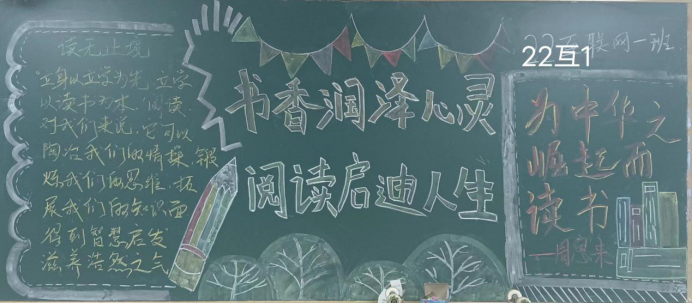 读无止境
立身以立学为先,立学
以读书为本。阅读
对我们来说,它可以
陶冶我们的情操,锻
炼我们的思维,拓
展我们的知识面
得到智慧启发
滋养浩然之气
书香润泽心灵
阅读启迪人生
22互联网一班
22互1
为中华之
崛起而
读书
—周恩来